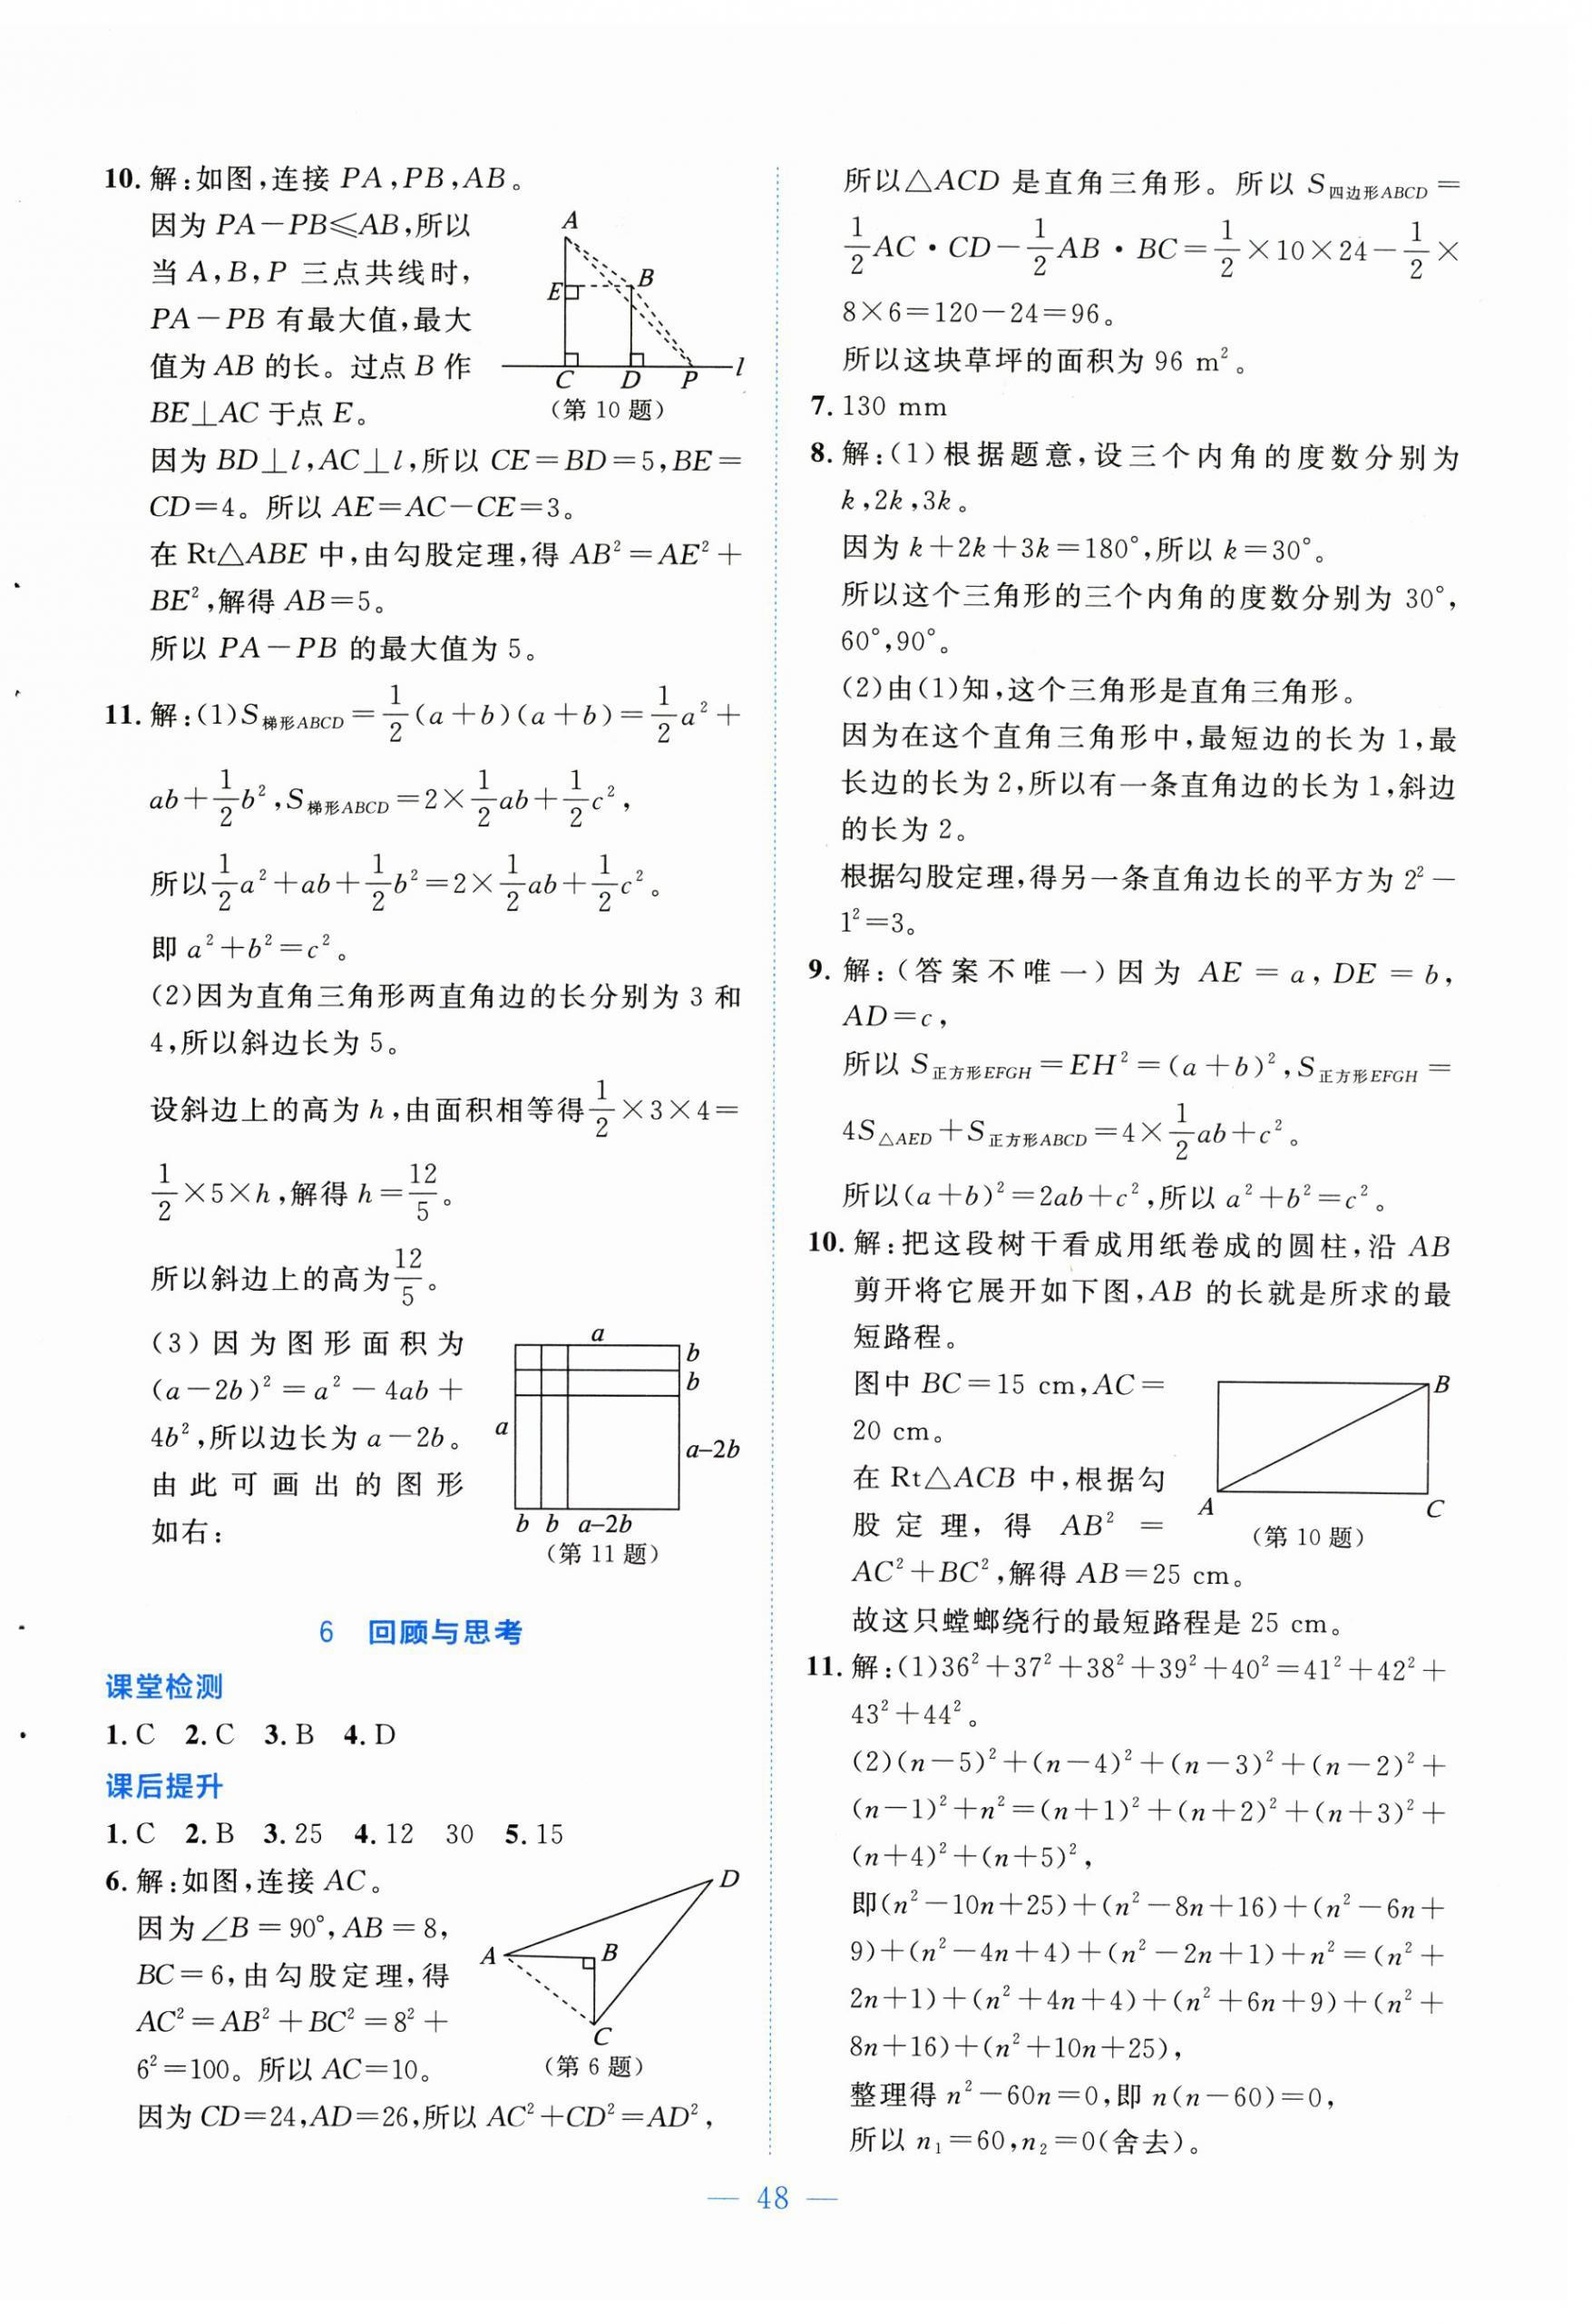 10. 解:如图,连接 PA,PB,AB。
因为 PA－PB≤AB,所以
当 A,B,P 三点共线时,
PA－PB 有最大值,最大
值为 AB 的长。过点 B 作
BE⊥AC 于点 E。
A
E
B
C
D
P
l
(第 10 题)
因为 BD⊥l,AC⊥l,所以 CE＝BD＝5,BE＝
CD＝4。所以 AE＝AC－CE＝3。
在 Rt△ABE 中,由勾股定理,得 AB²＝AE²＋
BE²,解得 AB＝5。
所以 PA－PB 的最大值为 5。
11. 解:(1)S梯形ABCD＝1/2(a＋b)(a＋b)＝1/2a²＋
ab＋1/2b²,S梯形ABCD＝2×1/2ab＋1/2c²,
所以1/2a²＋ab＋1/2b²＝2×1/2ab＋1/2c²。
即 a²＋b²＝c²。
(2)因为直角三角形两直角边的长分别为 3 和
4,所以斜边长为 5。
设斜边上的高为 h,由面积相等得1/2×3×4＝
1/2×5×h,解得 h＝12/5。
所以斜边上的高为12/5。
(3)因为图形面积为
(a－2b)²＝a²－4ab＋
4b²,所以边长为 a－2b。
由此可画出的图形
如右:
a
b
b
a
a–2b
b b a–2b
(第 11 题)
6 回顾与思考
课堂检测
1. C 2. C 3. B 4. D
课后提升
1. C 2. B 3. 25 4. 12 30 5. 15
6. 解:如图,连接 AC。
因为∠B＝90°,AB＝8,
BC＝6,由勾股定理,得
AC²＝AB²＋BC²＝8²＋
6²＝100。所以 AC＝10。
D
A
B
C
(第 6 题)
因为 CD＝24,AD＝26,所以 AC²＋CD²＝AD²,
所以△ACD 是直角三角形。所以 S四边形ABCD＝
1/2AC·CD－1/2AB·BC＝1/2×10×24－1/2×
8×6＝120－24＝96。
所以这块草坪的面积为 96 m²。
7. 130 mm
8. 解:(1)根据题意,设三个内角的度数分别为
k,2k,3k。
因为 k＋2k＋3k＝180°,所以 k＝30°。
所以这个三角形的三个内角的度数分别为 30°,
60°,90°。
(2)由(1)知,这个三角形是直角三角形。
因为在这个直角三角形中,最短边的长为 1,最
长边的长为 2,所以有一条直角边的长为 1,斜边
的长为 2。
根据勾股定理,得另一条直角边长的平方为 2²－
1²＝3。
9. 解:(答案不唯一)因为 AE＝a,DE＝b,
AD＝c,
所以 S正方形EFGH＝EH²＝(a＋b)²,S正方形EFGH＝
4S△AED＋S正方形ABCD＝4×1/2ab＋c²。
所以(a＋b)²＝2ab＋c²,所以 a²＋b²＝c²。
10. 解:把这段树干看成用纸卷成的圆柱,沿 AB
剪开将它展开如下图,AB 的长就是所求的最
短路程。
图中 BC＝15 cm,AC＝
20 cm。
在 Rt△ACB 中,根据勾
股定理,得 AB²＝
B
A
C
(第 10 题)
AC²＋BC²,解得 AB＝25 cm。
故这只螳螂绕行的最短路程是 25 cm。
11. 解:(1)36²＋37²＋38²＋39²＋40²＝41²＋42²＋
43²＋44²。
(2)(n－5)²＋(n－4)²＋(n－3)²＋(n－2)²＋
(n－1)²＋n²＝(n＋1)²＋(n＋2)²＋(n＋3)²＋
(n＋4)²＋(n＋5)²,
即(n²－10n＋25)＋(n²－8n＋16)＋(n²－6n＋
9)＋(n²－4n＋4)＋(n²－2n＋1)＋n²＝(n²＋
2n＋1)＋(n²＋4n＋4)＋(n²＋6n＋9)＋(n²＋
8n＋16)＋(n²＋10n＋25),
整理得 n²－60n＝0,即 n(n－60)＝0,
所以 n₁＝60,n₂＝0(舍去)。
— 48 —